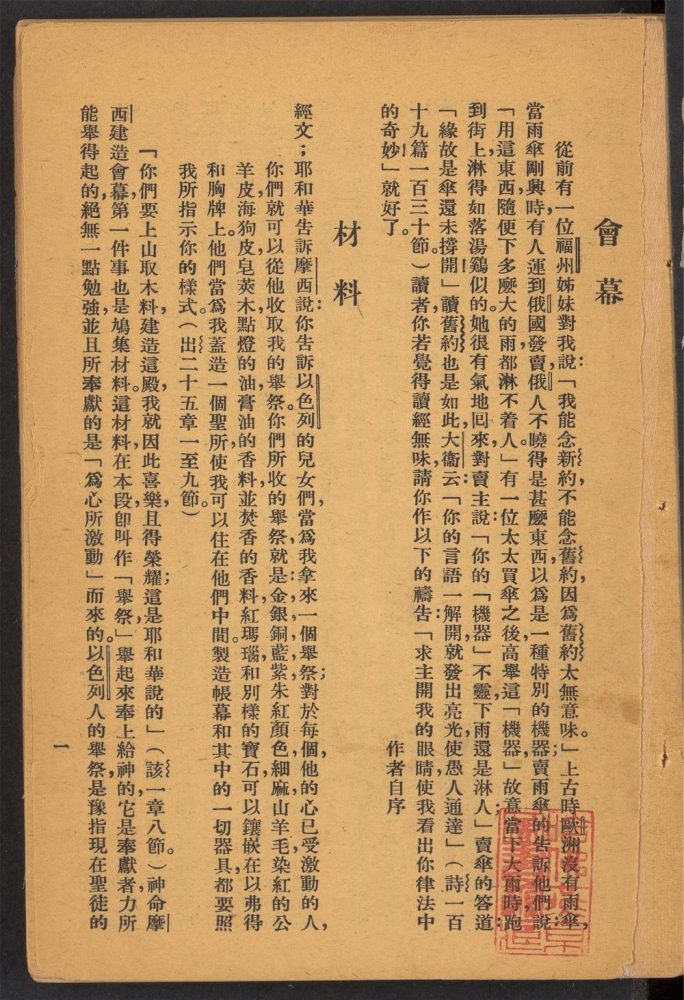 會幕
從前有一位福州姊妹對我說：「我能念新約，不能念舊約，因爲舊約太無意味。」上古時歐洲沒有雨傘，
當雨傘剛興時，有人運到俄國發賣，俄人不曉得是甚麼東西，以爲是一種特別的機器；賣雨傘的告訴他們說：
「用這東西，隨便下多麼大的雨，都淋不着人。」有一位太太買傘之後，高舉這「機器」，故意當下大雨時，跑
到街上，淋得如落湯鷄似的。她很有氣地回來，對賣主說：「你的「機器」不靈，下雨還是淋人；」賣傘的答道：
「緣故是傘還未撐開！」讀舊約也是如此，大衞云：「你的言語一解開，就發出亮光，使愚人通達」（詩一百
十九篇一百三十節。）讀者，你若覺得讀經無味，請你作以下的禱告：「求主開我的眼睛，使我看出你律法中
的奇妙！」就好了。
作者自序
材料
經文；耶和華告訴摩西說：你告訴以色列的兒女們，當爲我拿來一個舉祭；對於每個，他的心已受激動的人，
你們就可以從他收取我的舉祭。你們所收的舉祭，就是：金，銀，銅，藍，紫，朱紅顏色，細麻，山羊毛，染紅的公
羊皮，海狗皮，皂莢木，點燈的油，膏油的香料，並焚香的香料，紅瑪瑙，和別樣的寶石，可以鑲嵌在以弗得
和胸牌上。他們當爲我蓋造一個聖所，使我可以住在他們中間。製造帳幕和其中的一切器具，都要照
我所指示你的樣式。（出二十五章一至九節。）
「你們要上山取木料，建造這殿，我就因此喜樂，且得榮耀；這是耶和華說的」（該一章八節。）神命摩
西建造會幕，第一件事也是鳩集材料。這材料，在本段卽叫作「舉祭，」舉起來奉上給神的，它是奉獻者，力所
能舉得起的，絕無一點勉強，並且所奉獻的是「爲心所激動」而來的。以色列人的舉祭，是豫指現在聖徒的
一